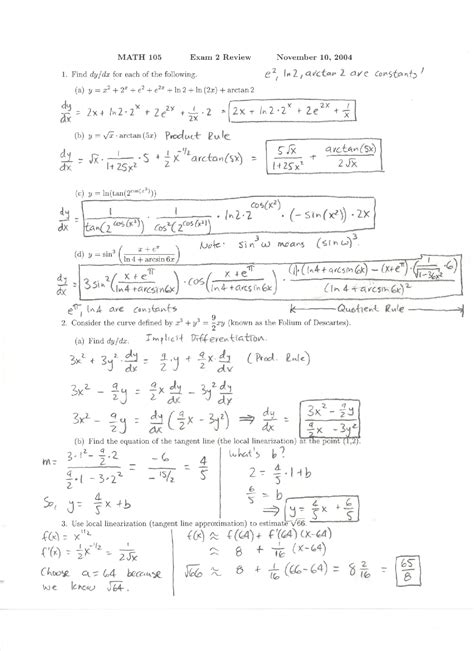 MATH 105 Exam 2 Review November 10, 2004
e², ln 2, arctan 2 are constants!
1. Find dy/dx for each of the following.
(a) y = x² + 2ˣ + e² + e²ˣ + ln 2 + ln(2x) + arctan 2
dy/dx = 2x + ln2·2ˣ + 2e²ˣ + 1/2x·2 = 2x + ln2·2ˣ + 2e²ˣ + 1/x
(b) y = √x · arctan(5x) Product Rule
dy/dx = √x · 1/(1+25x²) · 5 + 1/2 x^(-1/2) arctan(5x) = 5√x/(1+25x²) + arctan(5x)/(2√x)
(c) y = ln(tan(2^cos(x²)))
dy/dx = 1/tan(2^cos(x²)) · 1/cos²(2^cos(x²)) · ln2·2^cos(x²) · (-sin(x²)) · 2x
Note: sin³ w means (sin w)³
(d) y = sin³((x + e^π)/(ln 4 + arcsin 6x))
dy/dx = 3sin²((x+e^π)/(ln4+arcsin6x)) · cos((x+e^π)/(ln4+arcsin6x)) · (1·(ln4+arcsin6x) − (x+e^π) · 1/√(1-36x²) · 6)/(ln4+arcsin6x)²
e^π, ln4 are constants Quotient Rule
2. Consider the curve defined by x³ + y³ = 9/2 xy (known as the Folium of Descartes).
(a) Find dy/dx. Implicit Differentiation.
3x² + 3y² · dy/dx = 9/2 · y + 9/2 x · dy/dx (Prod. Rule)
3x² − 9/2 y = 9/2 x dy/dx − 3y² dy/dx
3x² − 9/2 y = dy/dx (9/2 x − 3y²) ⇒ dy/dx = (3x² − 9/2 y)/(9/2 x − 3y²)
(b) Find the equation of the tangent line (the local linearization) at the point (1,2).
m = (3·1² − 9/2·2)/(9/2·1 − 3·2²) = -6/(-15/2) = 4/5
So, y = 4/5 x + b
What's b?
2 = 4/5 · 1 + b
6/5 = b
⇒ y = 4/5 x + 6/5
3. Use local linearization (tangent line approximation) to estimate √66.
f(x) = x^(1/2)
f'(x) = 1/2 x^(-1/2) = 1/(2√x)
Choose a = 64 because
we know √64.
f(x) ≈ f(64) + f'(64)(x−64)
≈ 8 + 1/16 (x−64)
√66 ≈ 8 + 1/16 (66−64) = 8 2/16 = 65/8